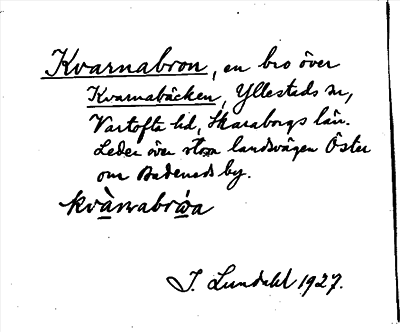 Kvarnabron, en bro över
Kvarnabäcken, Yllestads sn,
Vartofta hd, Skaraborgs län.
Leder över stora landsvägen Öster
om Badened by.
kvànnabróa
J. Lundahl 1927.